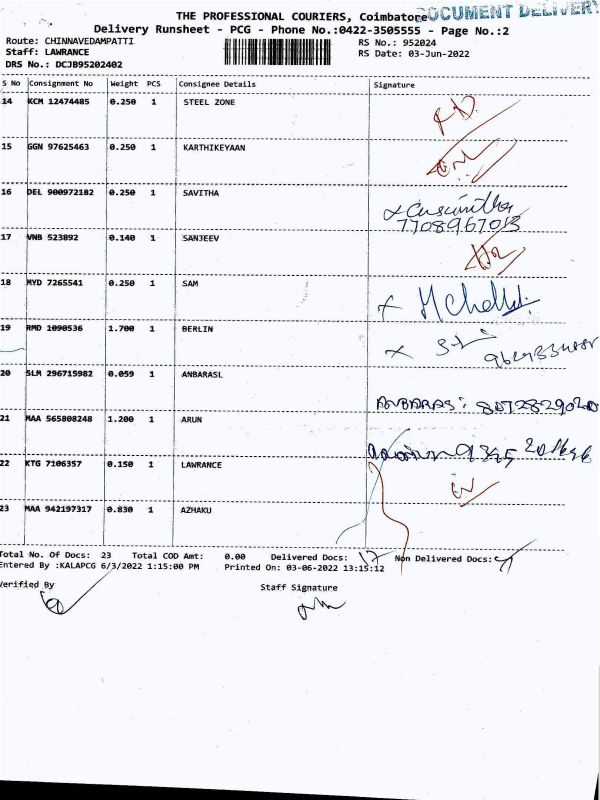 THE PROFESSIONAL COURIERS, Coimbatore
DOCUMENT DELIVERY
Delivery Runsheet - PCG - Phone No.:0422-3505555 - Page No.:2
Route: CHINNAVEDAMPATTI RS No.: 952024
Staff: LAWRANCE RS Date: 03-Jun-2022
DRS No.: DCJB95202402
S No Consignment No Weight PCS Consignee Details Signature
14 KCM 12474485 0.250 1 STEEL ZONE
15 GGN 97625463 0.250 1 KARTHIKEYAAN
16 DEL 900972182 0.250 1 SAVITHA
7708967013
17 VNB 523892 0.140 1 SANJEEV
18 MYD 7265541 0.250 1 SAM
19 RMD 1090536 1.700 1 BERLIN
20 SLM 296715982 0.059 1 ANBARASL
ANBARAS: 8072829020
21 MAA 565808248 1.200 1 ARUN
22 KTG 7106357 0.150 1 LAWRANCE
23 MAA 942197317 0.830 1 AZHAKU
Total No. Of Docs: 23 Total COD Amt: 0.00 Delivered Docs: 17 Non Delivered Docs:
Entered By :KALAPCG 6/3/2022 1:15:00 PM Printed On: 03-06-2022 13:15:12
Verified By Staff Signature